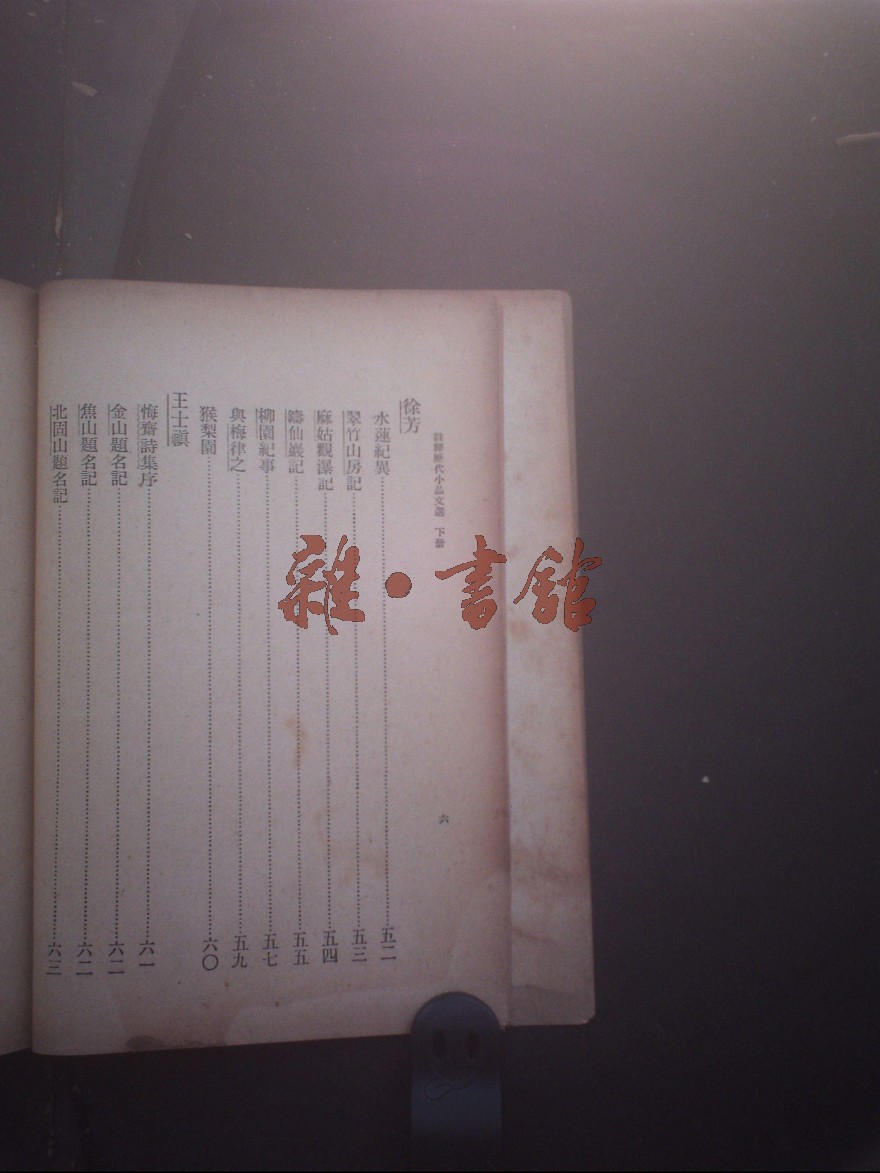 註釋歷代小品文選 下册
六
徐芳
水蓮紀異 五二
翠竹山房記 五三
麻姑觀瀑記 五四
鑄仙巖記 五五
柳園紀事 五七
與梅律之 五九
猴梨園 六〇
王士禛
悔齋詩集序 六一
金山題名記 六二
焦山題名記 六二
北固山題名記 六三
雜·書館